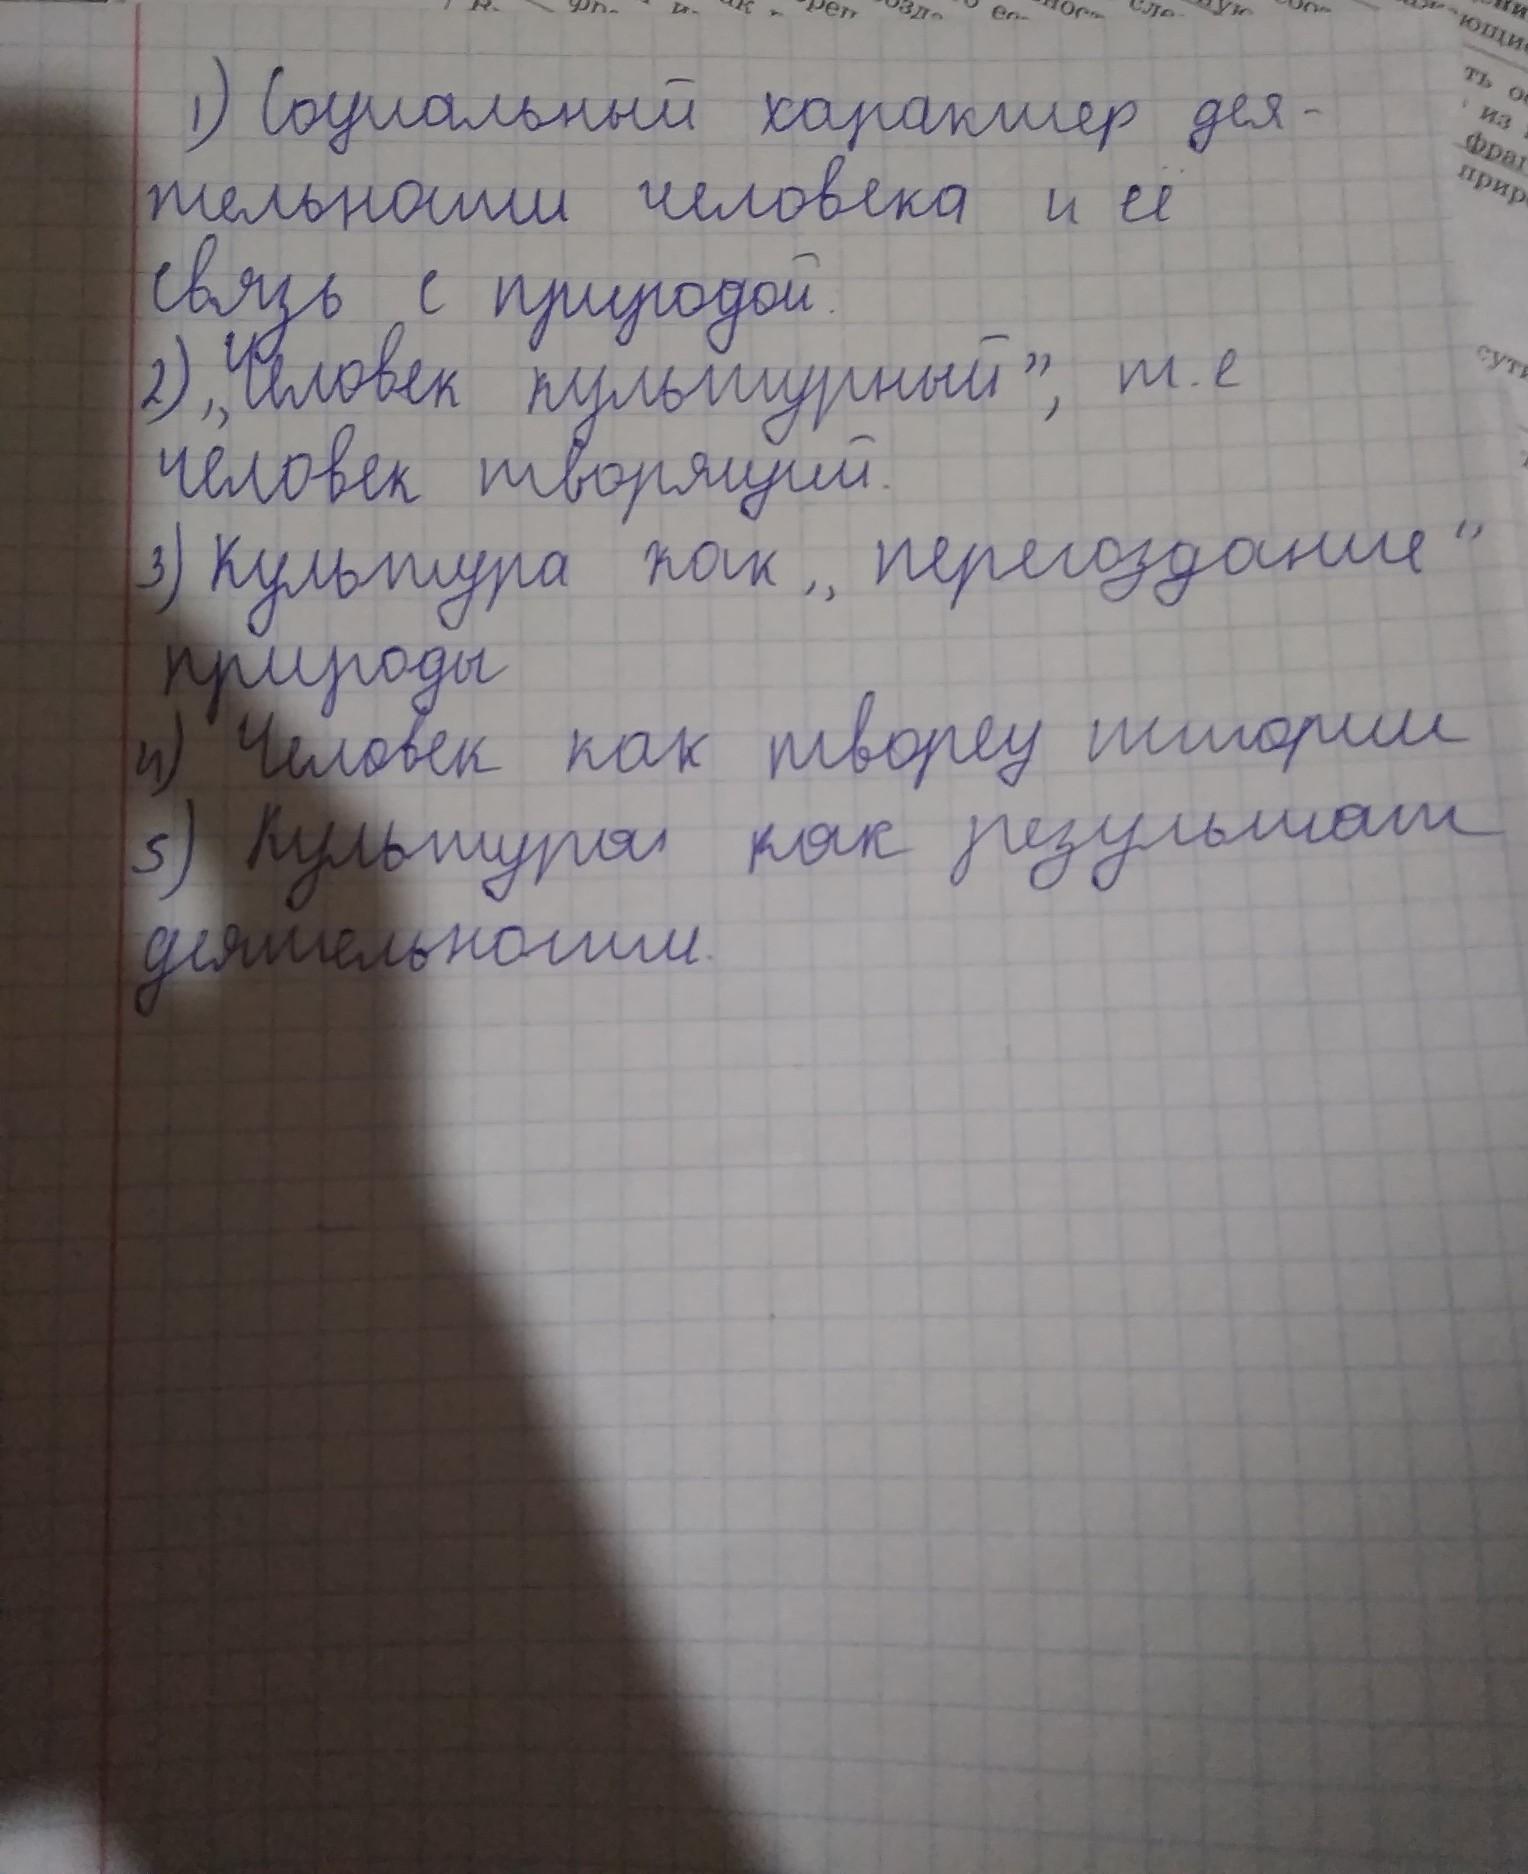 1) Социальный характер дея-
тельности человека и её
связь с природой.
2) „Человек культурный”, т.е
человек творящий.
3) Культура как „пересоздание”
природы
4) Человек как творец истории
5) Культура как результат
деятельности.
ющие
ть
из
сути